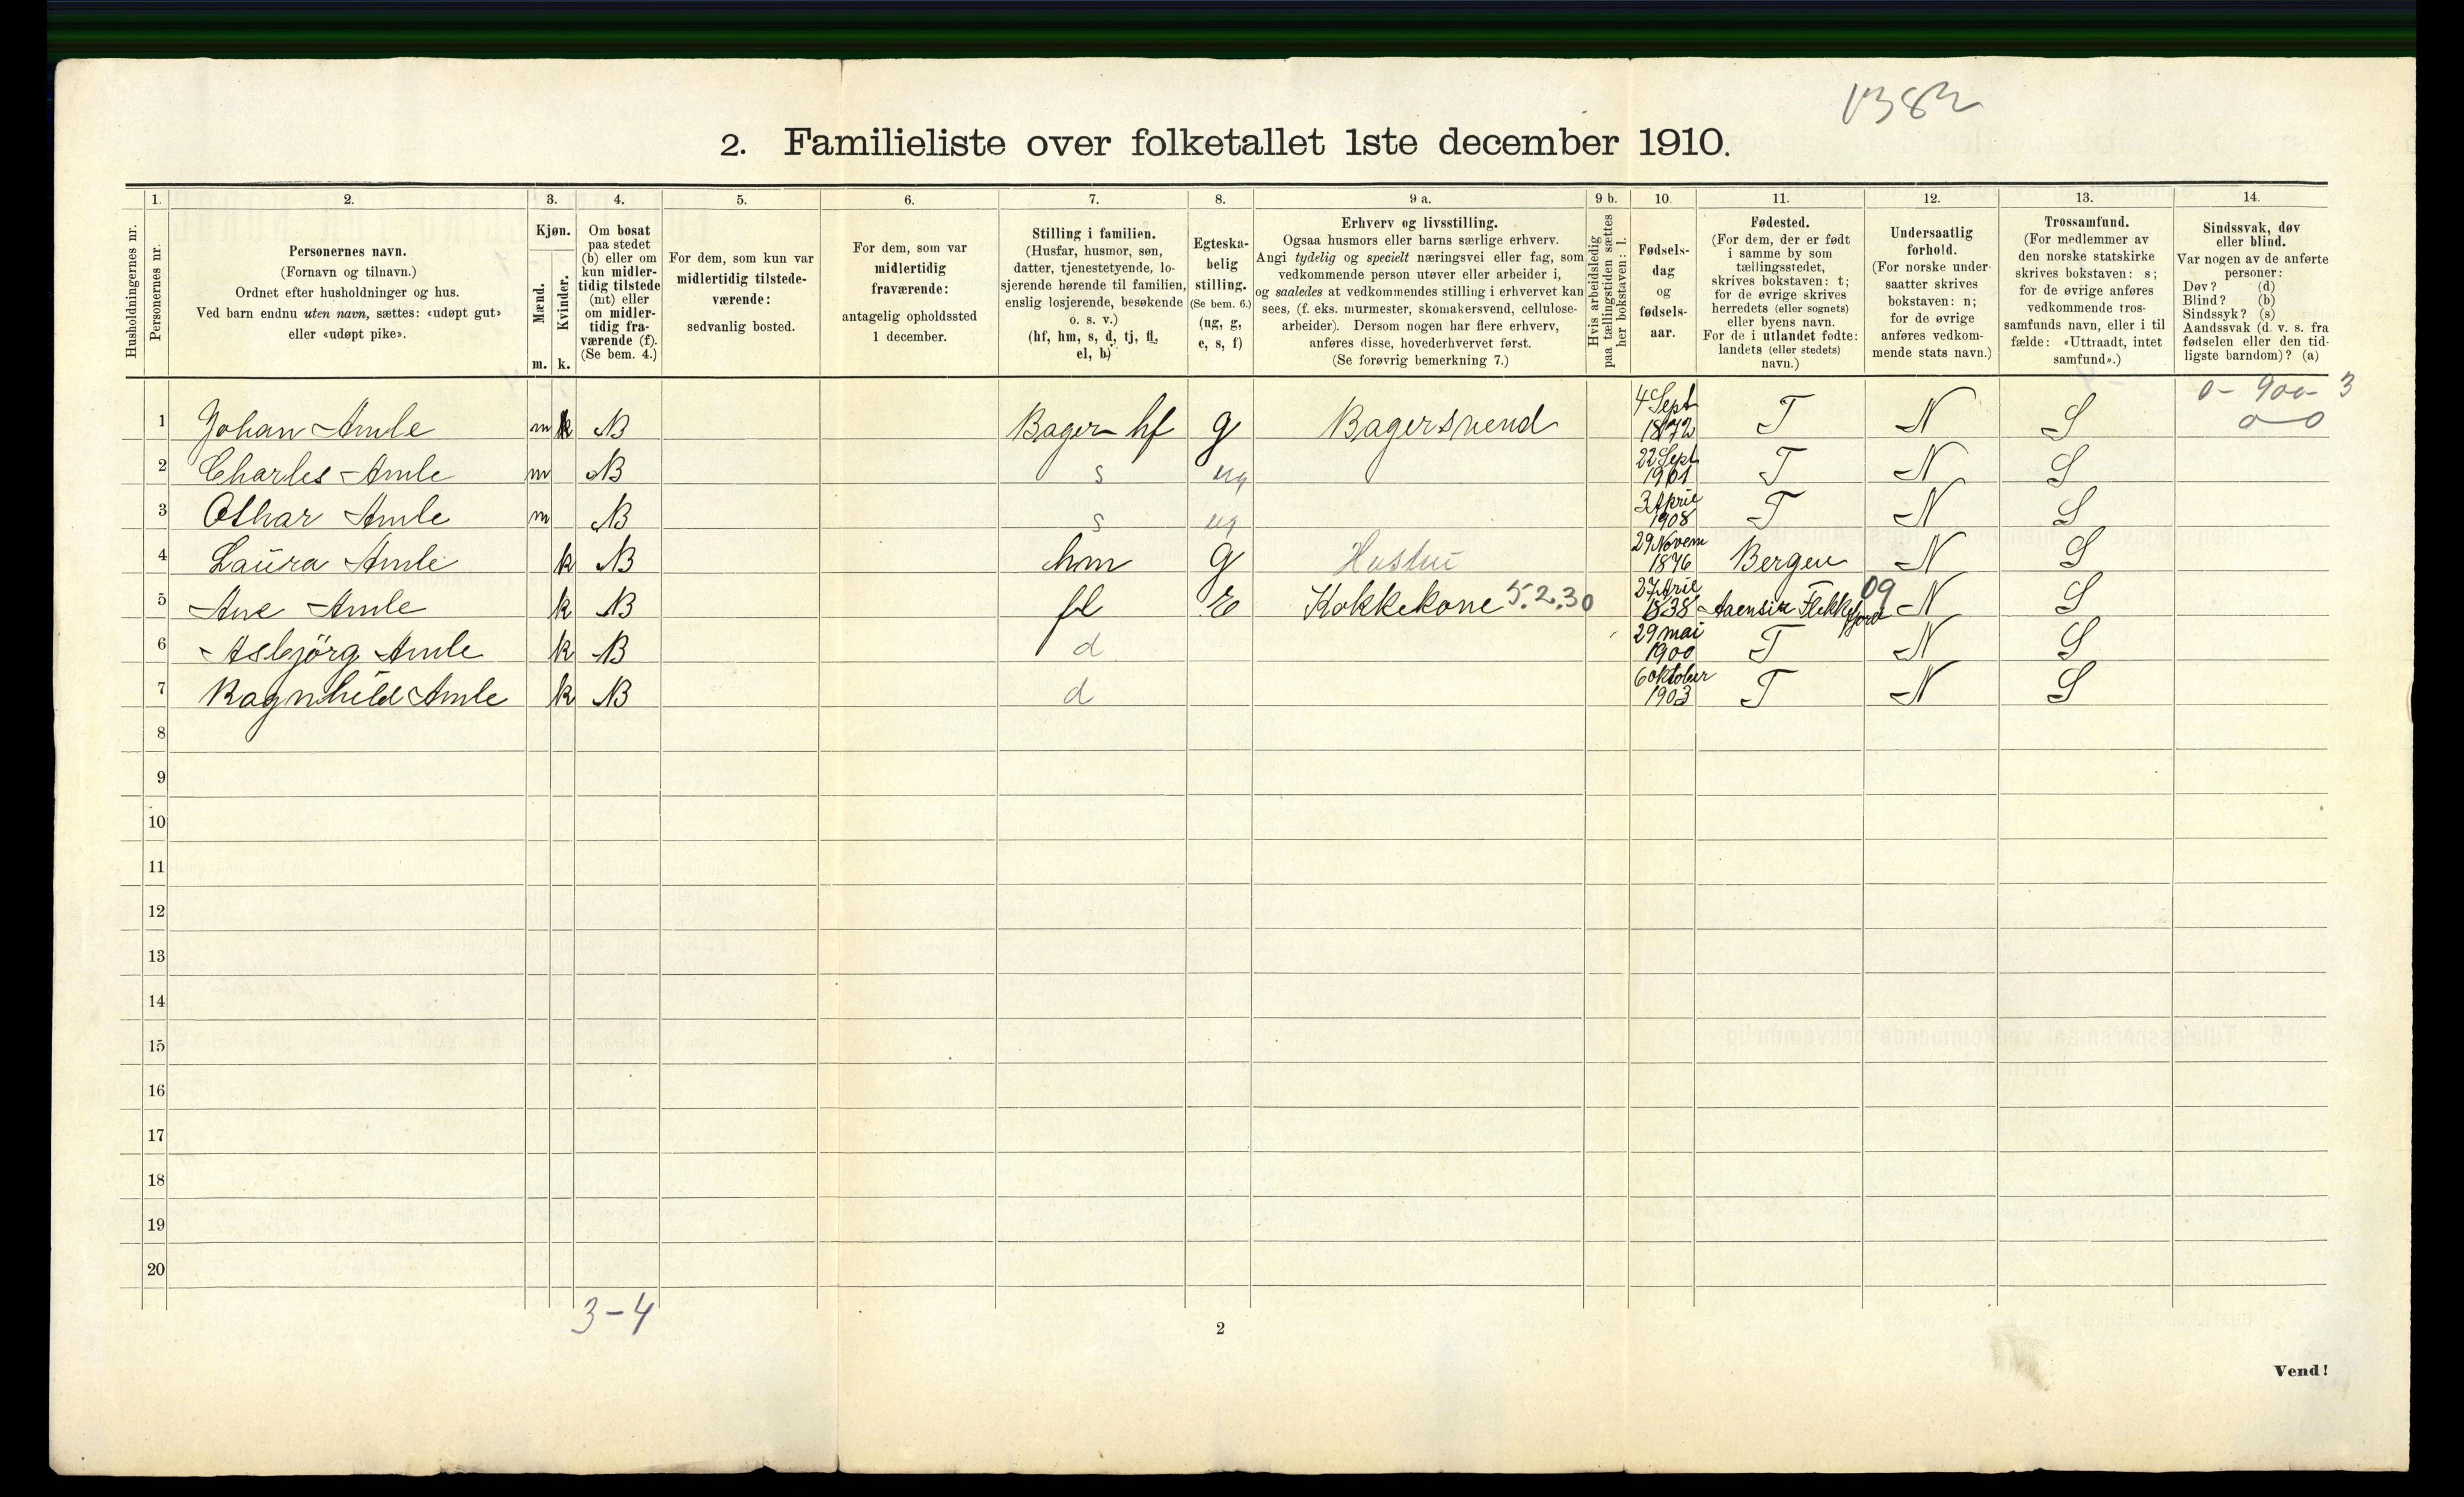 1382
2. Familieliste over folketallet 1ste december 1910.
Husholdningernes nr.
1. Personernes nr.
2. Personernes navn.
(Fornavn og tilnavn.)
Ordnet efter husholdninger og hus.
Ved barn endnu uten navn, sættes: «udøpt gut»
eller «udøpt pike».
3. Kjøn.
Mænd. m.
Kvinder. k.
4. Om bosat
paa stedet
(b) eller om
kun midler-
tidig tilstede
(mt) eller
om midler-
tidig fra-
værende (f).
(Se bem. 4.)
5. For dem, som kun var
midlertidig tilstede-
værende:
sedvanlig bosted.
6. For dem, som var
midlertidig
fraværende:
antagelig opholdssted
1 december.
7. Stilling i familien.
(Husfar, husmor, søn,
datter, tjenestetyende, lo-
sjerende hørende til familien,
enslig losjerende, besøkende
o. s. v.)
(hf, hm, s, d, tj, fl,
el, b)
8. Egteska-
belig
stilling.
(Se bem. 6.)
(ug, g,
e, s, f)
9 a. Erhverv og livsstilling.
Ogsaa husmors eller barns særlige erhverv.
Angi tydelig og specielt næringsvei eller fag, som
vedkommende person utøver eller arbeider i,
og saaledes at vedkommendes stilling i erhvervet kan
sees, (f. eks. murmester, skomakersvend, cellulose-
arbeider). Dersom nogen har flere erhverv,
anføres disse, hovederhvervet først.
(Se forøvrig bemerkning 7.)
9 b. Hvis arbeidsledig
paa tællingstiden sættes
her bokstaven: l.
10. Fødsels-
dag
og
fødsels-
aar.
11. Fødested.
(For dem, der er født
i samme by som
tællingsstedet,
skrives bokstaven: t;
for de øvrige skrives
herredets (eller sognets)
eller byens navn.
For de i utlandet fødte:
landets (eller stedets)
navn.)
12. Undersaatlig
forhold.
(For norske under-
saatter skrives
bokstaven: n;
for de øvrige
anføres vedkom-
mende stats navn.)
13. Trossamfund.
(For medlemmer av
den norske statskirke
skrives bokstaven: s;
for de øvrige anføres
vedkommende tros-
samfunds navn, eller i til-
fælde: «Uttraadt, intet
samfund».)
14. Sindssvak, døv
eller blind.
Var nogen av de anførte
personer:
Døv? (d)
Blind? (b)
Sindssyk? (s)
Aandssvak (d. v. s. fra
fødselen eller den tid-
ligste barndom)? (a)
0 - 900 - 3
0 - 0
1 Johan Amle m B Bager hf g Bagersvend 4 Sept 1872 T N S
2 Charles Amle m B s ug 22 Sept 1901 T N S
3 Othar Amle m B s ug 3 April 1908 T N S
4 Laura Amle k B hm g Hustru 29 Novem 1876 Bergen N S
5 Ane Amle k B fl E Kokkekone 5.2.30 27 April 1838 Flekkefjord 09 N S
6 Asbjörg Amle k B d 29 mai 1900 T N S
7 Ragnhild Amle k B d 6 oktober 1903 T N S
8
9
10
11
12
13
14
15
16
17
18
19
20
3-4
2
Vend!